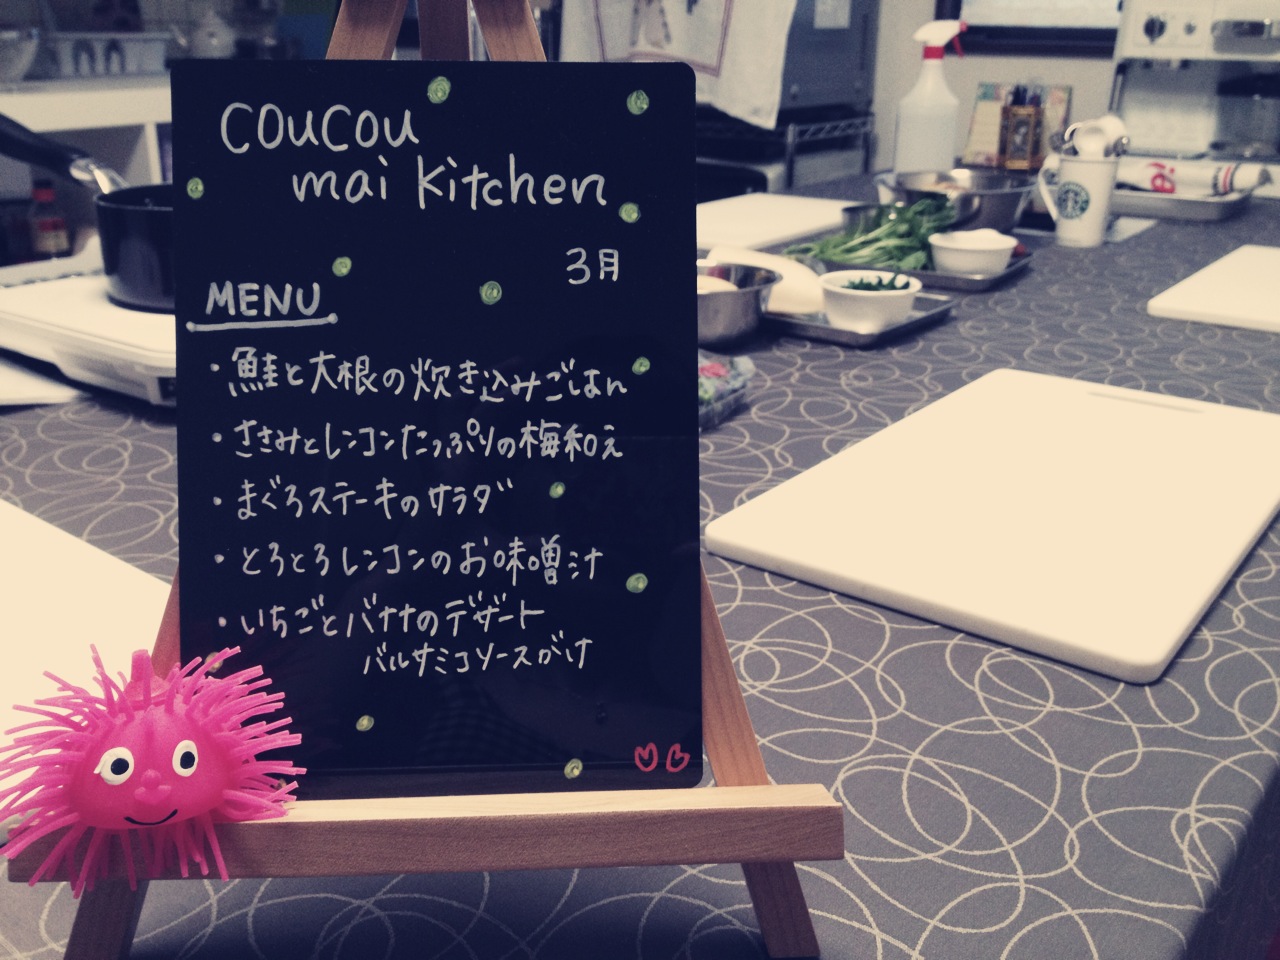 coucou
mai kitchen
3月
MENU
・鮭と大根の炊き込みごはん
・ささみとレンコンたっぷりの梅和え
・まぐろステーキのサラダ
・とろとろレンコンのお味噌汁
・いちごとバナナのデザート
バルサミコソースがけ